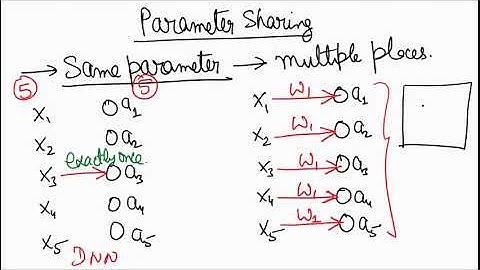 Parameter Sharing
→ Same parameter → multiple places.
5 5
x₁ a₁
x₂ a₂
exactly once
x₃ a₃
x₄ a₄
x₅ a₅
DNN
x₁ w₁ a₁
x₂ w₁ a₂
x₃ w₁ a₃
x₄ w₁ a₄
x₅ w₁ a₅